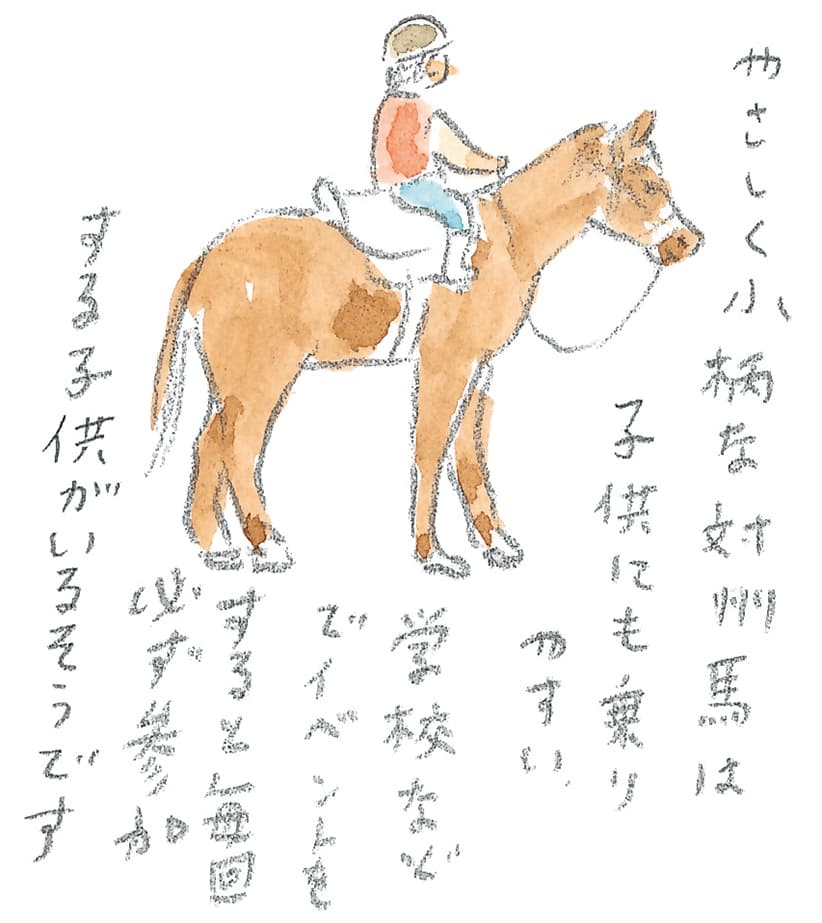 やさしく小柄な対州馬は
子供にも乗り
やすい、
学校など
でイベントを
すると毎回
必ず参加
する子供がいるそうです